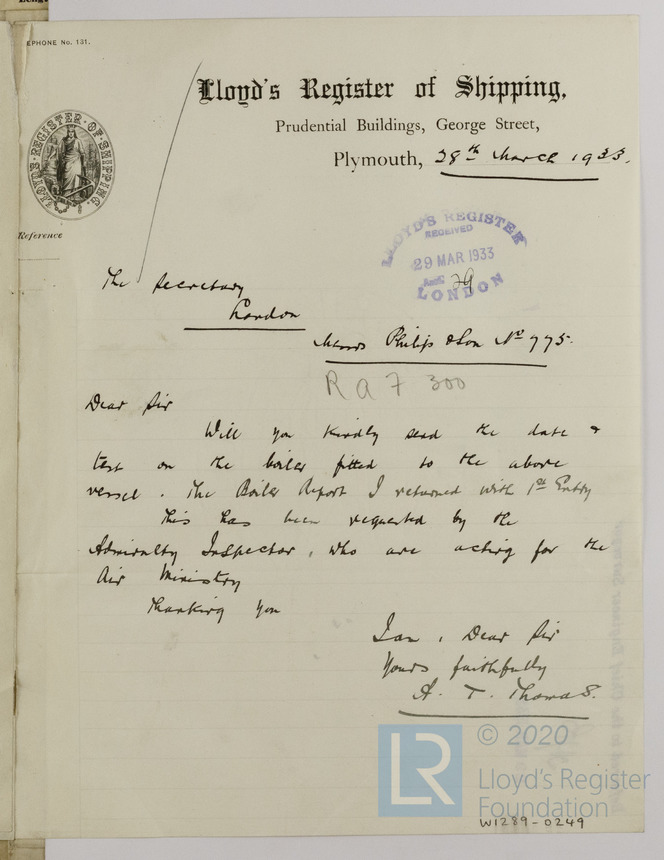 EPHONE No. 131.
Lloyd's Register of Shipping,
Prudential Buildings, George Street,
Plymouth, 28th March 1933.
LLOYD'S REGISTER OF SHIPPING
Reference
LLOYD'S REGISTER
RECEIVED
29 MAR 1933
29
LONDON
The Secretary
London
Messrs Philip & Son No 775.
R A F 300
Dear Sir
Will you kindly send the date &
test on the boiler fitted to the above
vessel. The Boiler Report I returned with 1st Entry
This has been requested by the
Admiralty Inspector, who are acting for the
Air Ministry
Thanking you
I am, Dear Sir
Yours faithfully
A. T. Thomas.
LR
© 2020
Lloyd's Register
Foundation
W1289-0249